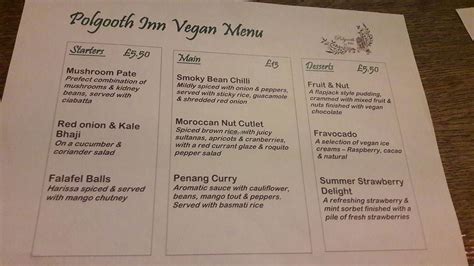 Polgooth Inn Vegan Menu
Starters £5.50
Mushroom Pate
Prefect combination of
mushrooms & kidney
beans, served with
ciabatta
Red onion & Kale
Bhaji
On a cucumber &
coriander salad
Falafel Balls
Harissa spiced & served
with mango chutney
Main £13
Smoky Bean Chilli
Mildly spiced with onion & peppers,
served with sticky rice, guacamole
& shredded red onion
Moroccan Nut Cutlet
Spiced brown rice with juicy
sultanas, apricots & cranberries,
with a red currant glaze & roquito
pepper salad
Penang Curry
Aromatic sauce with cauliflower,
beans, mango tout & peppers.
Served with basmati rice
Desserts £5.50
Fruit & Nut
A flapjack style pudding,
crammed with mixed fruit &
nuts finished with vegan
chocolate
Fravocado
A selection of vegan ice
creams – Raspberry, cacao
& natural
Summer Strawberry
Delight
A refreshing strawberry &
mint sorbet finished with a
pile of fresh strawberries